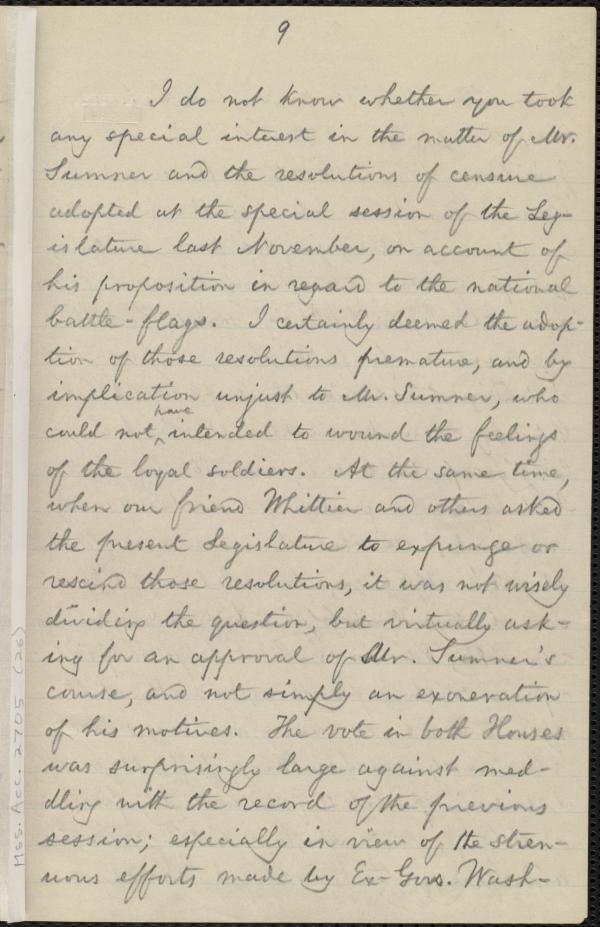 9
I do not know whether you took
any special interest in the matter of Mr.
Sumner and the resolutions of censure
adopted at the special session of the Leg-
islature last November, on account of
his proposition in regard to the national
battle-flags. I certainly deemed the adop-
tion of those resolutions premature, and by
implication unjust to Mr. Sumner, who
have
could not ‸ intended to wound the feelings
of the loyal soldiers. At the same time,
when our friend Whittier and others asked
the present Legislature to expunge or
rescind those resolutions, it was not wisely
dividing the question, but virtually ask-
ing for an approval of Mr. Sumner's
course, and not simply an exoneration
of his motives. The vote in both Houses
was surprisingly large against med-
dling with the record of the previous
session; especially in view of the stren-
uous efforts made by Ex-Govs. Wash-
Mss. Acc. 2705 (26)